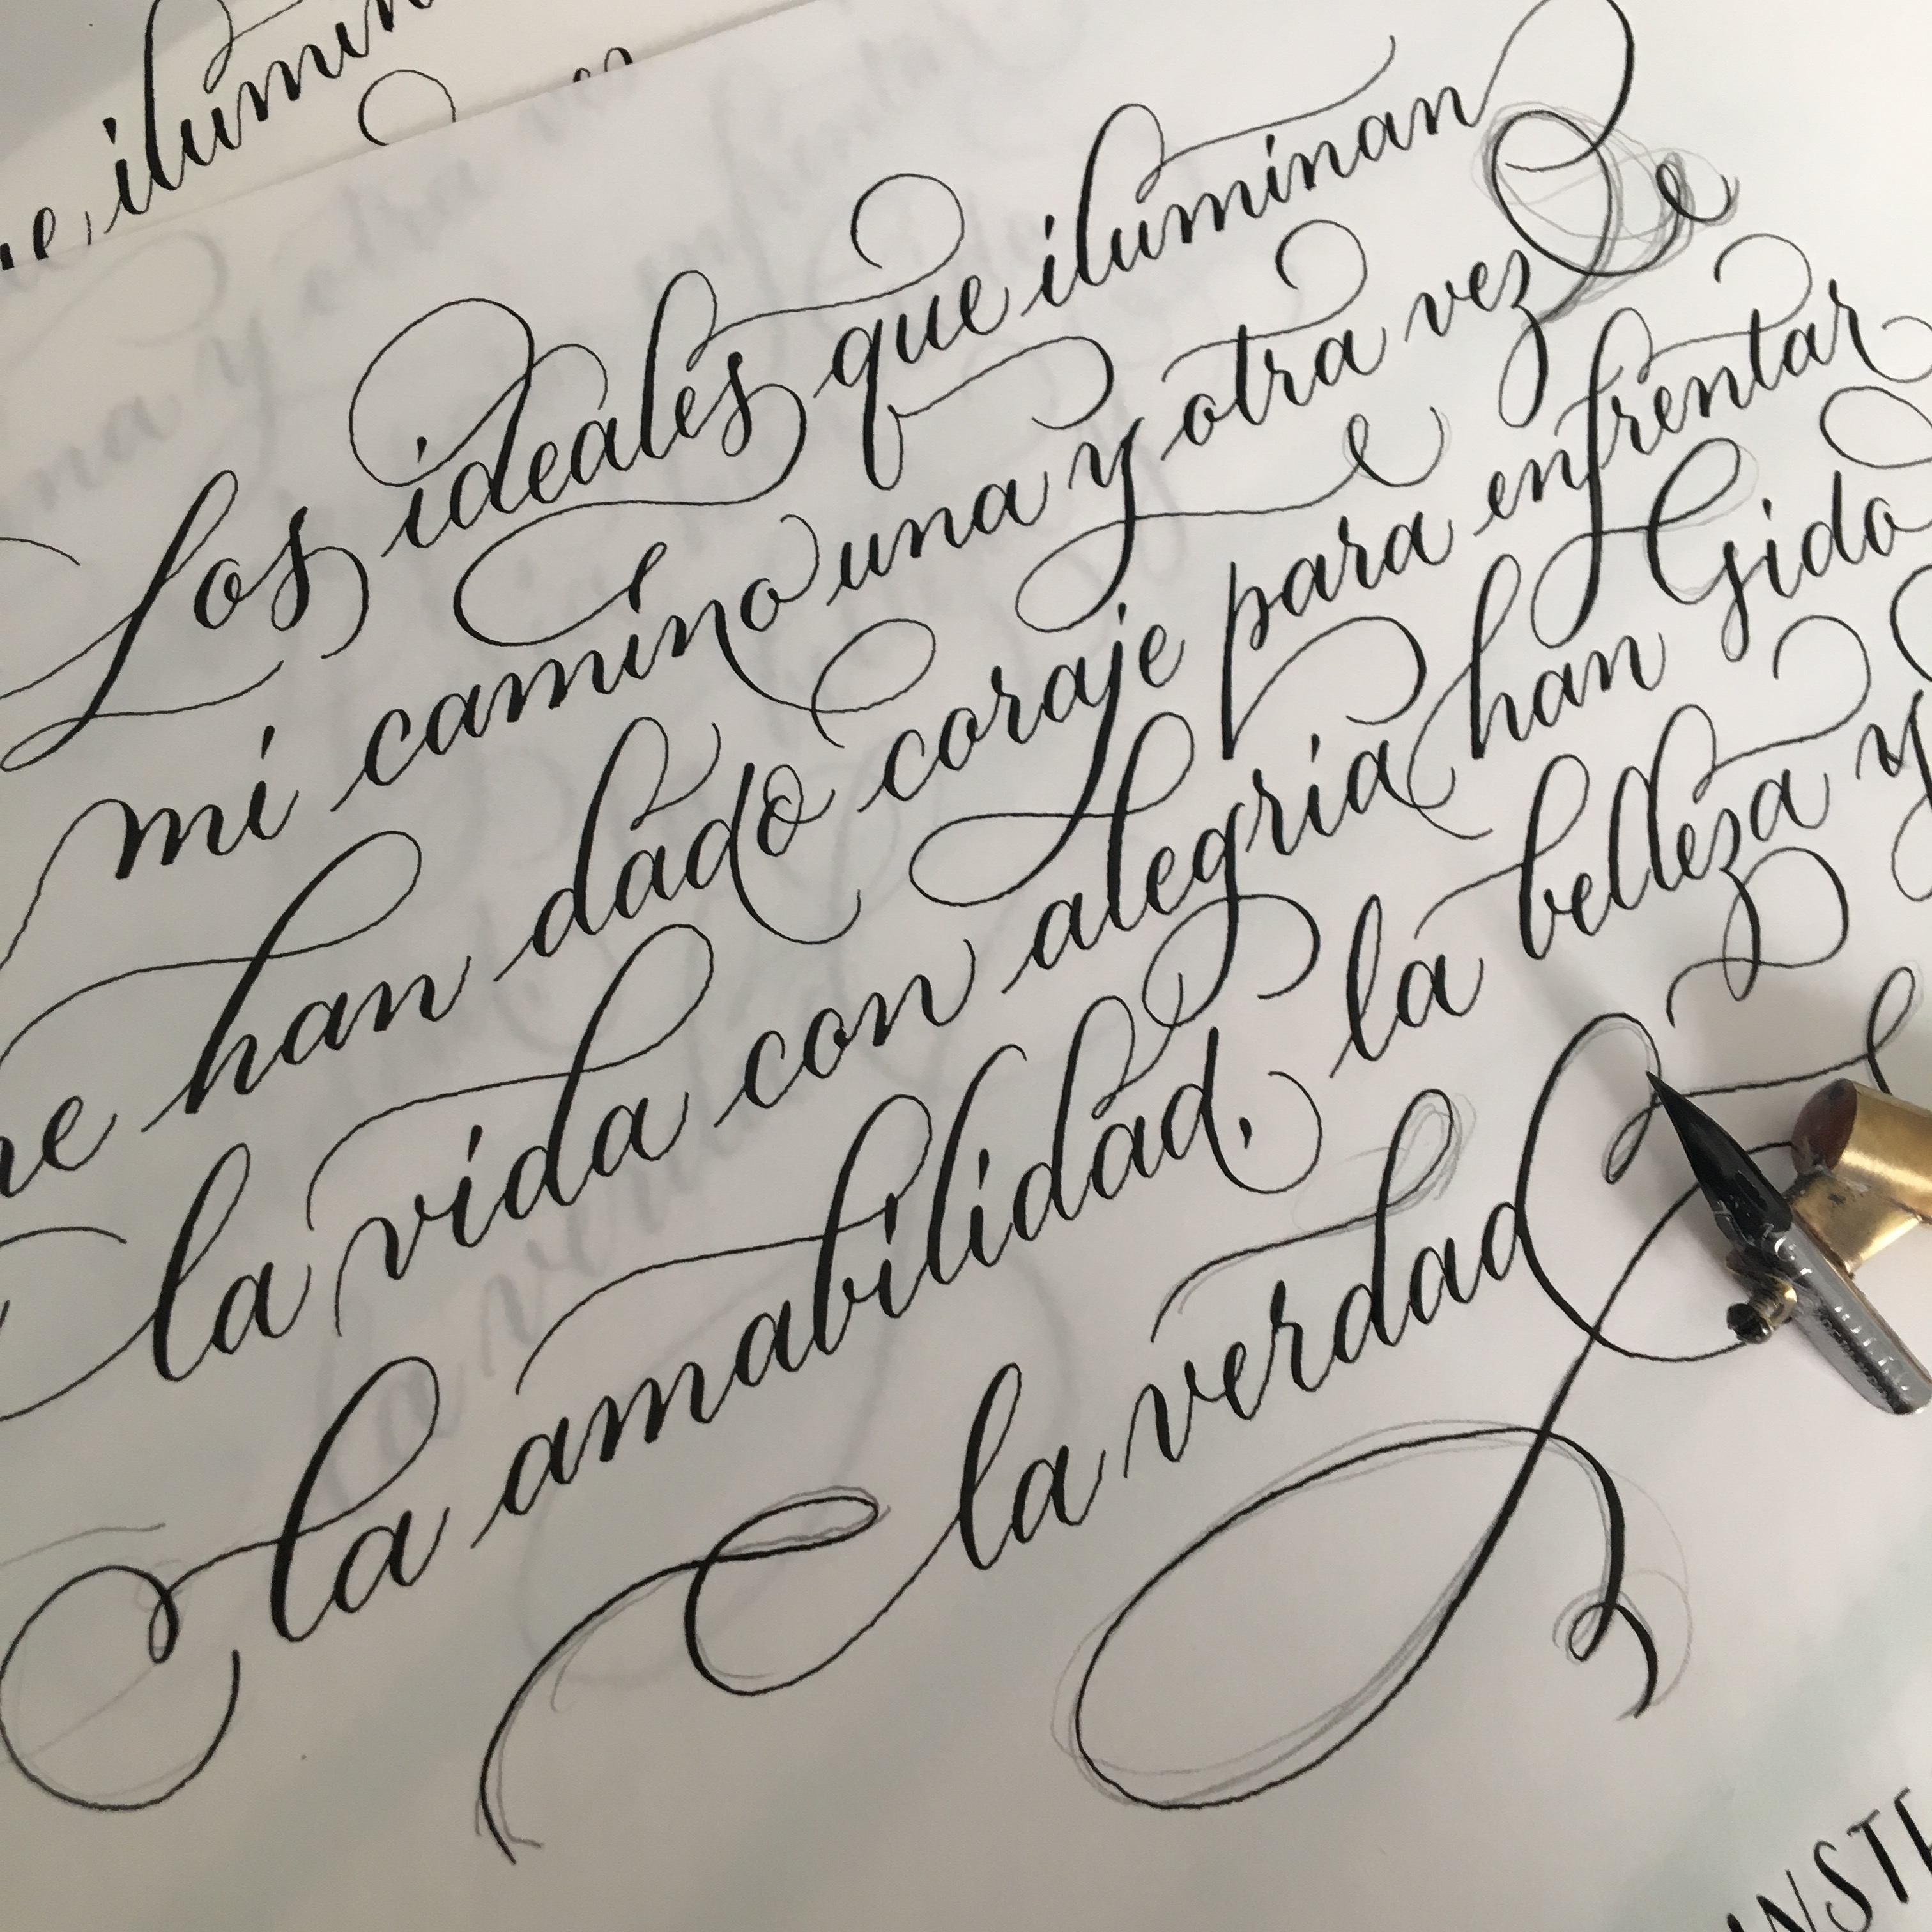 ilumin
Los ideales que iluminan
mi camino una y otra vez
han dado coraje para enfrentar
la vida con alegría han sido
la amabilidad, la belleza y
la verdad